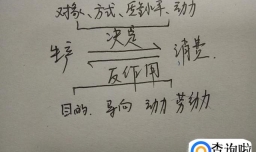 对象、方式、质量水平、动力
决定
生产 消费
反作用
目的、导向 动力 劳动力
查询啦